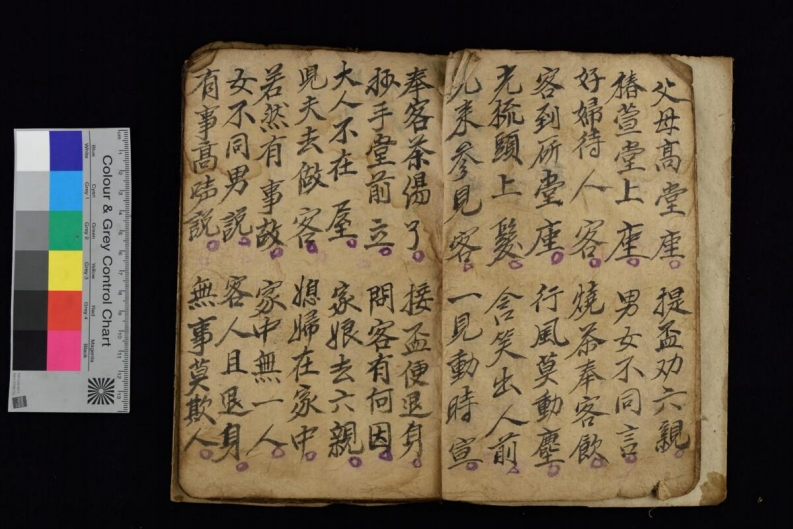 父母高堂座 提盃劝六親
椿萱堂上座 男女不同言
好婦待人客 燒茶奉客飲
客到所堂座 行風莫動塵
先梳頭上髮 含笑出人前
先來參見客 一見動時宣
奉客茶湯了 接盃便退身
抄手堂前立 問客有何因
大人不在屋 家娘去六親
児夫去做客 媳婦在家中
若然有事故 家中無一人
女不同男説 客人且退身
有事高声説 無事莫欺人
Colour & Grey Control Chart
Blue Cyan Green Yellow Red Magenta
White Grey 1 Grey 2 Grey 3 Grey 4 Black